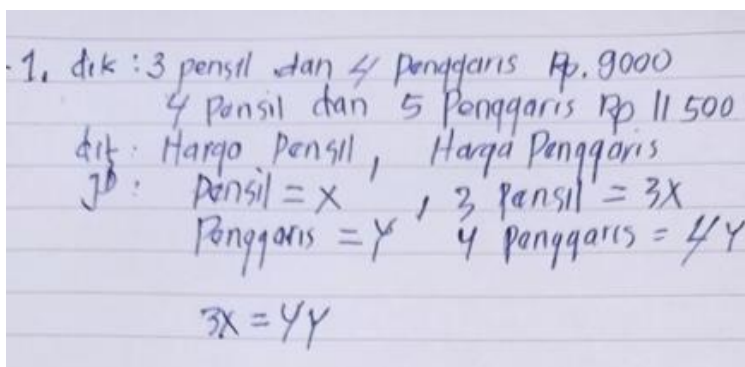 1. dik : 3 pensil dan 4 Penggaris Rp. 9000
4 Pensil dan 5 Penggaris Rp 11 500
dit : Harga Pensil, Harga Penggaris
JD : Pensil = X , 3 Pensil = 3X
Penggaris = Y 4 Penggaris = 4Y
3X = 4Y